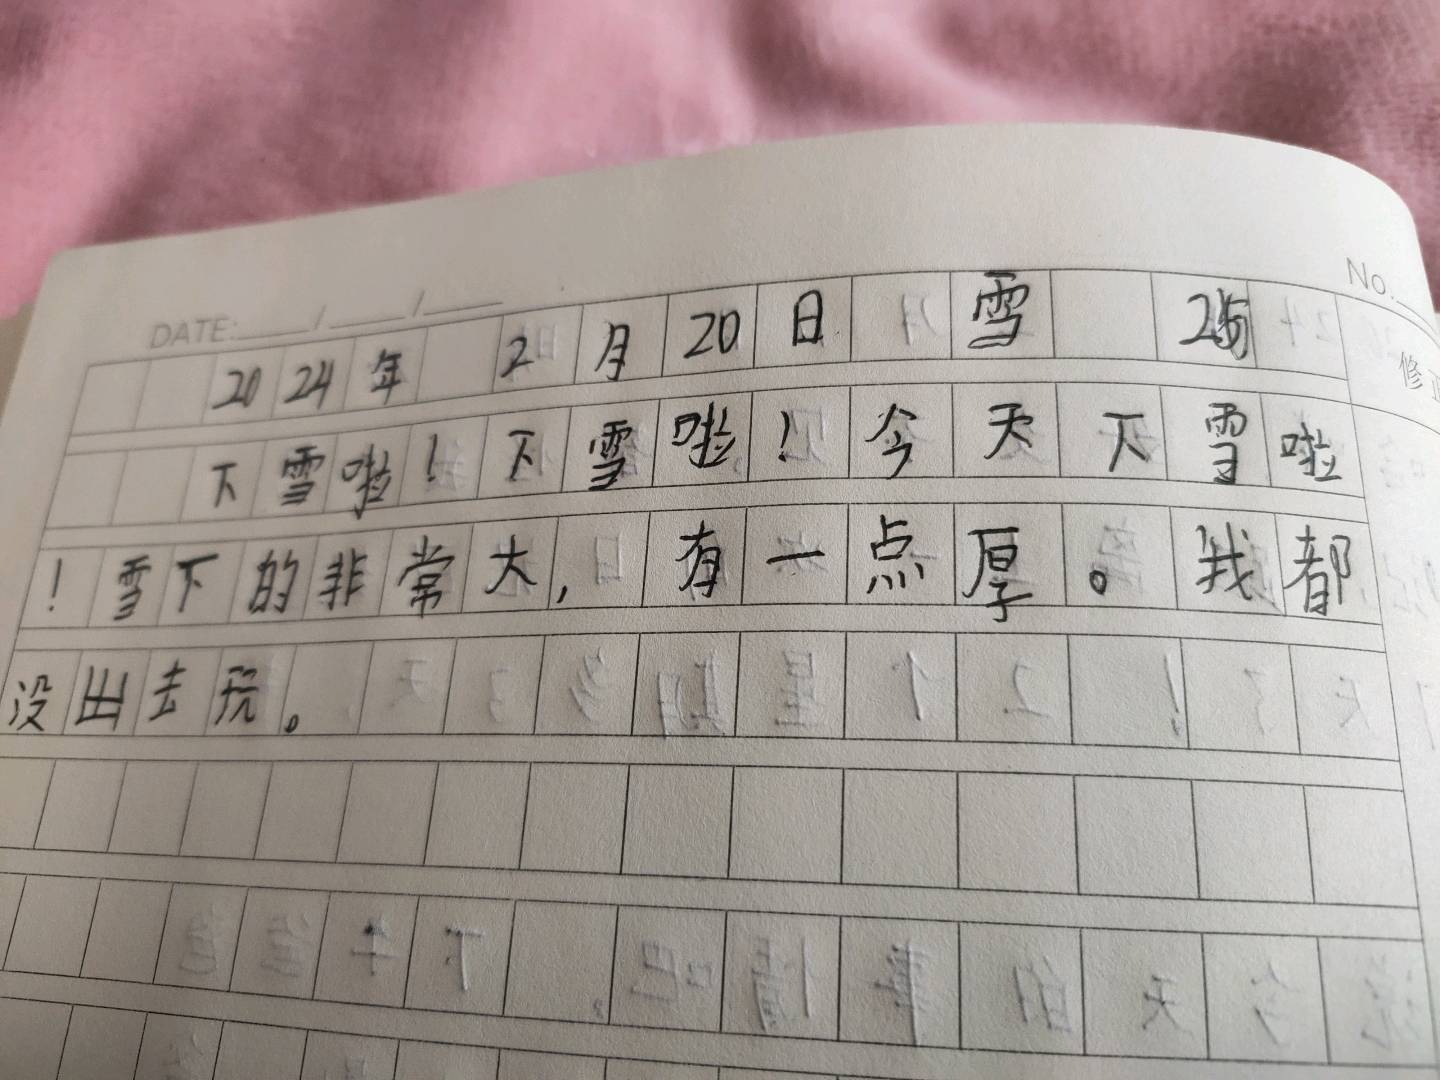 DATE: / /
No.
2024年 2月20日 雪
修正
下雪啦！下雪啦！今天下雪啦
！雪下的非常大，有一点厚。我都
没出去玩。